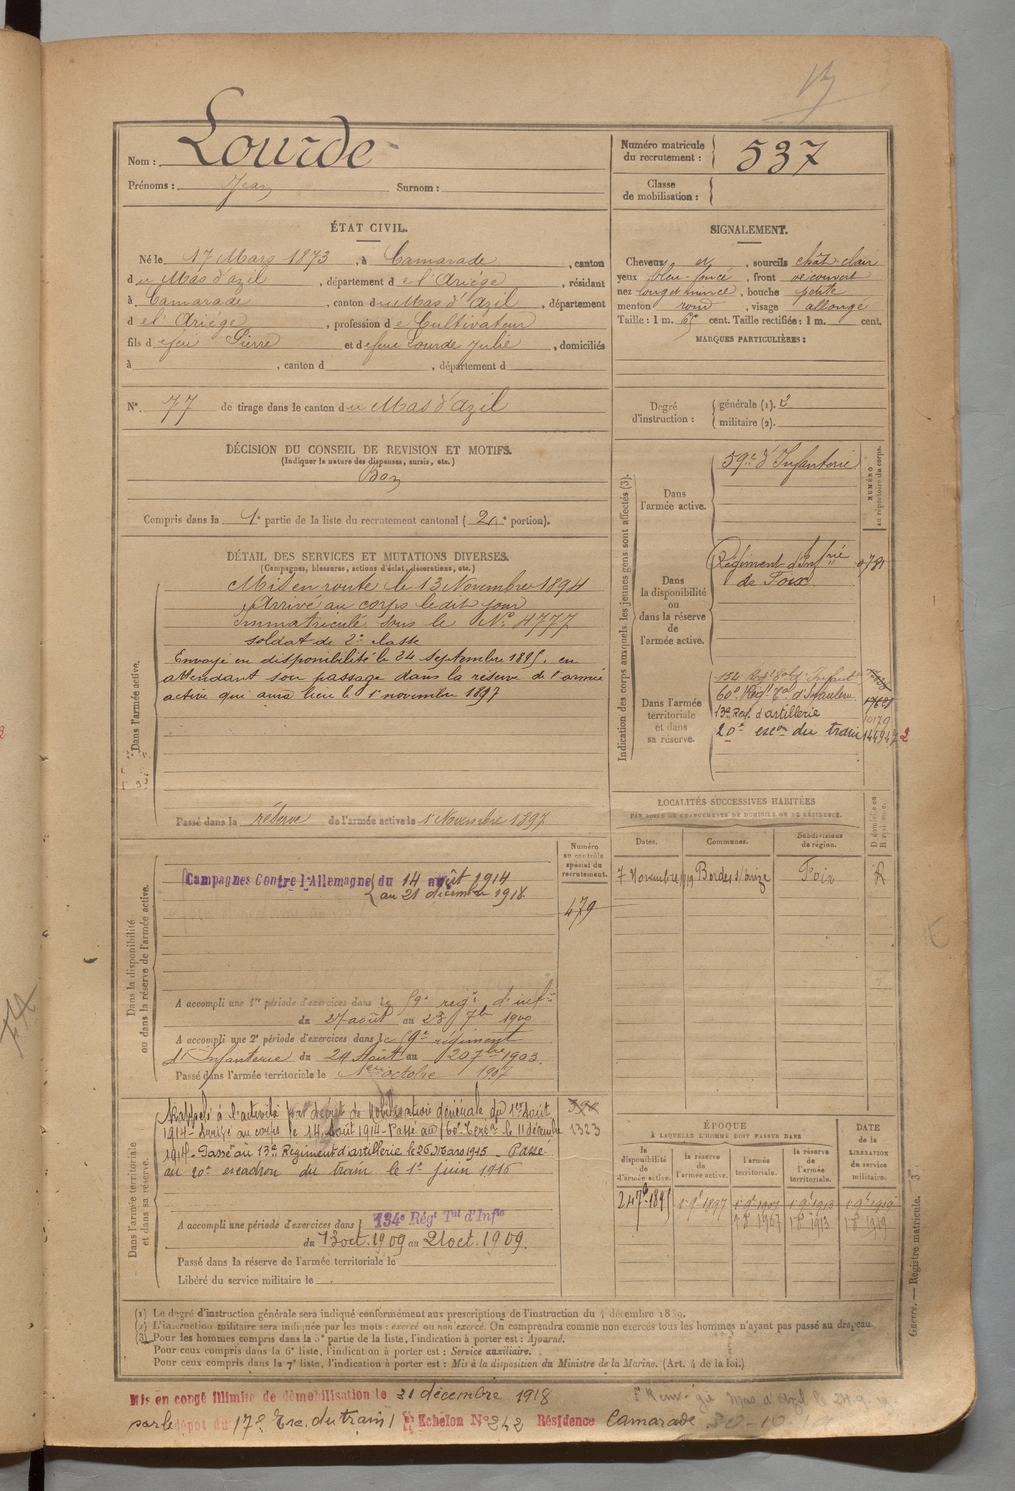 Nom : Lourde
Prénoms : Jean Surnom :
Numéro matricule du recrutement : 537
Classe de mobilisation :
ÉTAT CIVIL.
Né le 17 Mars 1873, à Camarade, canton
du Mas d'azil, département de l'Ariége, résidant
à Camarade, canton du Mas d'Azil, département
de l'Ariége, profession de Cultivateur
fils de feu Pierre et de feue Lourde Julie, domiciliés
à , canton d , département d
N° 77 de tirage dans le canton du Mas d'azil
DÉCISION DU CONSEIL DE REVISION ET MOTIFS.
(Indiquer la nature des dispenses, sursis, etc.)
Bon
Compris dans la 1e partie de la liste du recrutement cantonal ( 2e portion).
SIGNALEMENT.
Cheveux , sourcils chât clair
yeux bleu foncé, front découvert
nez long et mince, bouche petite
menton rond, visage allongé
Taille : 1 m. 65 cent. Taille rectifiée : 1 m. cent.
MARQUES PARTICULIÈRES :
Degré d'instruction : générale (1). 2
militaire (2).
DÉTAIL DES SERVICES ET MUTATIONS DIVERSES.
(Campagnes, blessures, actions d'éclat, décorations, etc.)
Dans l'armée active.
Mis en route le 13 Novembre 1894
Arrivé au corps le dit jour
Immatriculé sous le N° 4777
soldat de 2e classe
Envoyé en disponibilité le 24 septembre 1895, en
attendant son passage dans la réserve de l'armée
active qui aura lieu le 1er novembre 1897
Passé dans la réserve de l'armée active le 1er Novembre 1897
Indication des corps auxquels les jeunes gens sont affectés (3).
NUMÉRO au répertoire du corps.
Dans l'armée active.
59e d'Infanterie
Dans la disponibilité ou dans la réserve de l'armée active.
Régiment d'Infrie
de Foix
Dans l'armée territoriale et dans sa réserve.
60e Rég. Tal d'Infanterie
13e Reg. d'artillerie
20e escon du train
LOCALITÉS SUCCESSIVES HABITÉES
PAR SUITE DE CHANGEMENTS DE DOMICILE OU DE RÉSIDENCE.
Dates. Communes. Subdivisions de région. D domicile ou R résidence.
7 Novembre 1919 Bordes s/Arize Foix R
Dans la disponibilité ou dans la réserve de l'armée active.
Numéro au contrôle spécial du recrutement.
479
Campagnes Contre l'Allemagne du 14 août 1914
au 21 décembre 1918
A accompli une 1re période d'exercices dans le 59e regt d'infie
du 27 août au 23 7bre 1900
A accompli une 2e période d'exercices dans le 59e régiment
d'Infanterie du 24 Août au 20 7bre 1903
Passé dans l'armée territoriale le 1er octobre 1907
Dans l'armée territoriale et dans sa réserve.
Rappelé à l'activité par décret de mobilisation générale du 1er Août
1914 - Arrivé au corps le 14 Août 1914 - Passé au 60e Terral le 11 décembre
1914 - Passé au 13e Régiment d'artillerie le 26 Mars 1915 - Passé
au 20e escadron du train le 1er juin 1916
1323
A accompli une période d'exercices dans 134e Régt Tal d'Infie
du 13 oct. 1909 au 21 oct. 1909.
Passé dans la réserve de l'armée territoriale le
Libéré du service militaire le
ÉPOQUE
À LAQUELLE L'HOMME DOIT PASSER DANS
DATE de la LIBÉRATION du service militaire.
la disponibilité de l'armée active. la réserve de l'armée active. l'armée territoriale. la réserve de l'armée territoriale.
24 7b 1895 1er 9b 1897 1er 9b 1907 1er 9b 1913 1er 9b 1919
1er 8b 1907 1er 8b 1913 1er 8b 1919
Guerre. — Registre matricule. 3
(1) Le degré d'instruction générale sera indiqué conformément aux prescriptions de l'instruction du 4 décembre 1889.
(2) L'instruction militaire sera indiquée par les mots : exercé ou non exercé. On comprendra comme non exercés tous les hommes n'ayant pas passé au drapeau.
(3) Pour les hommes compris dans la 5e partie de la liste, l'indication à porter est : Ajourné.
Pour ceux compris dans la 6e liste, l'indication à porter est : Service auxiliaire.
Pour ceux compris dans la 7e liste, l'indication à porter est : Mis à la disposition du Ministre de la Marine. (Art. 4 de la loi.)
Mis en congé illimité de démobilisation le 21 décembre 1918
par le dépôt du 17e Esc. du train Echelon N° 242 Résidence Camarade